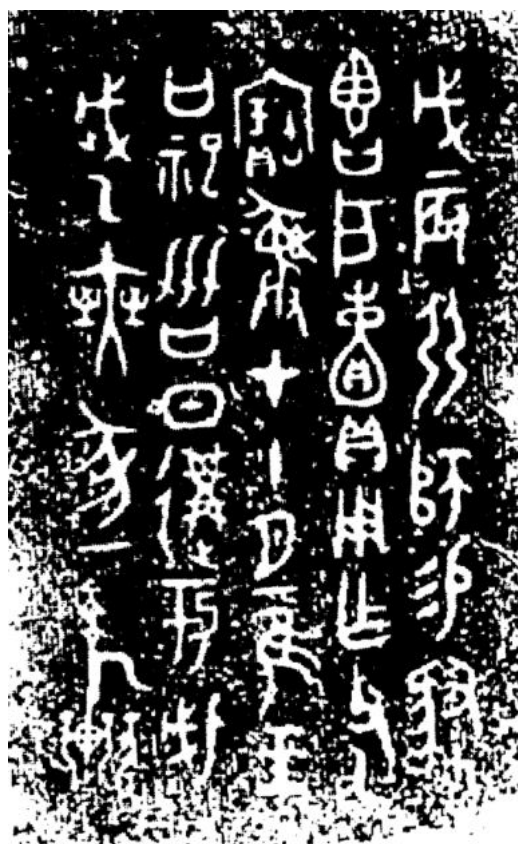 戊辰弜師易肄
户貝用乍父乙
寶彝才十月一隹王
廿祀劦日遘于匕
戊武乙奭豕一